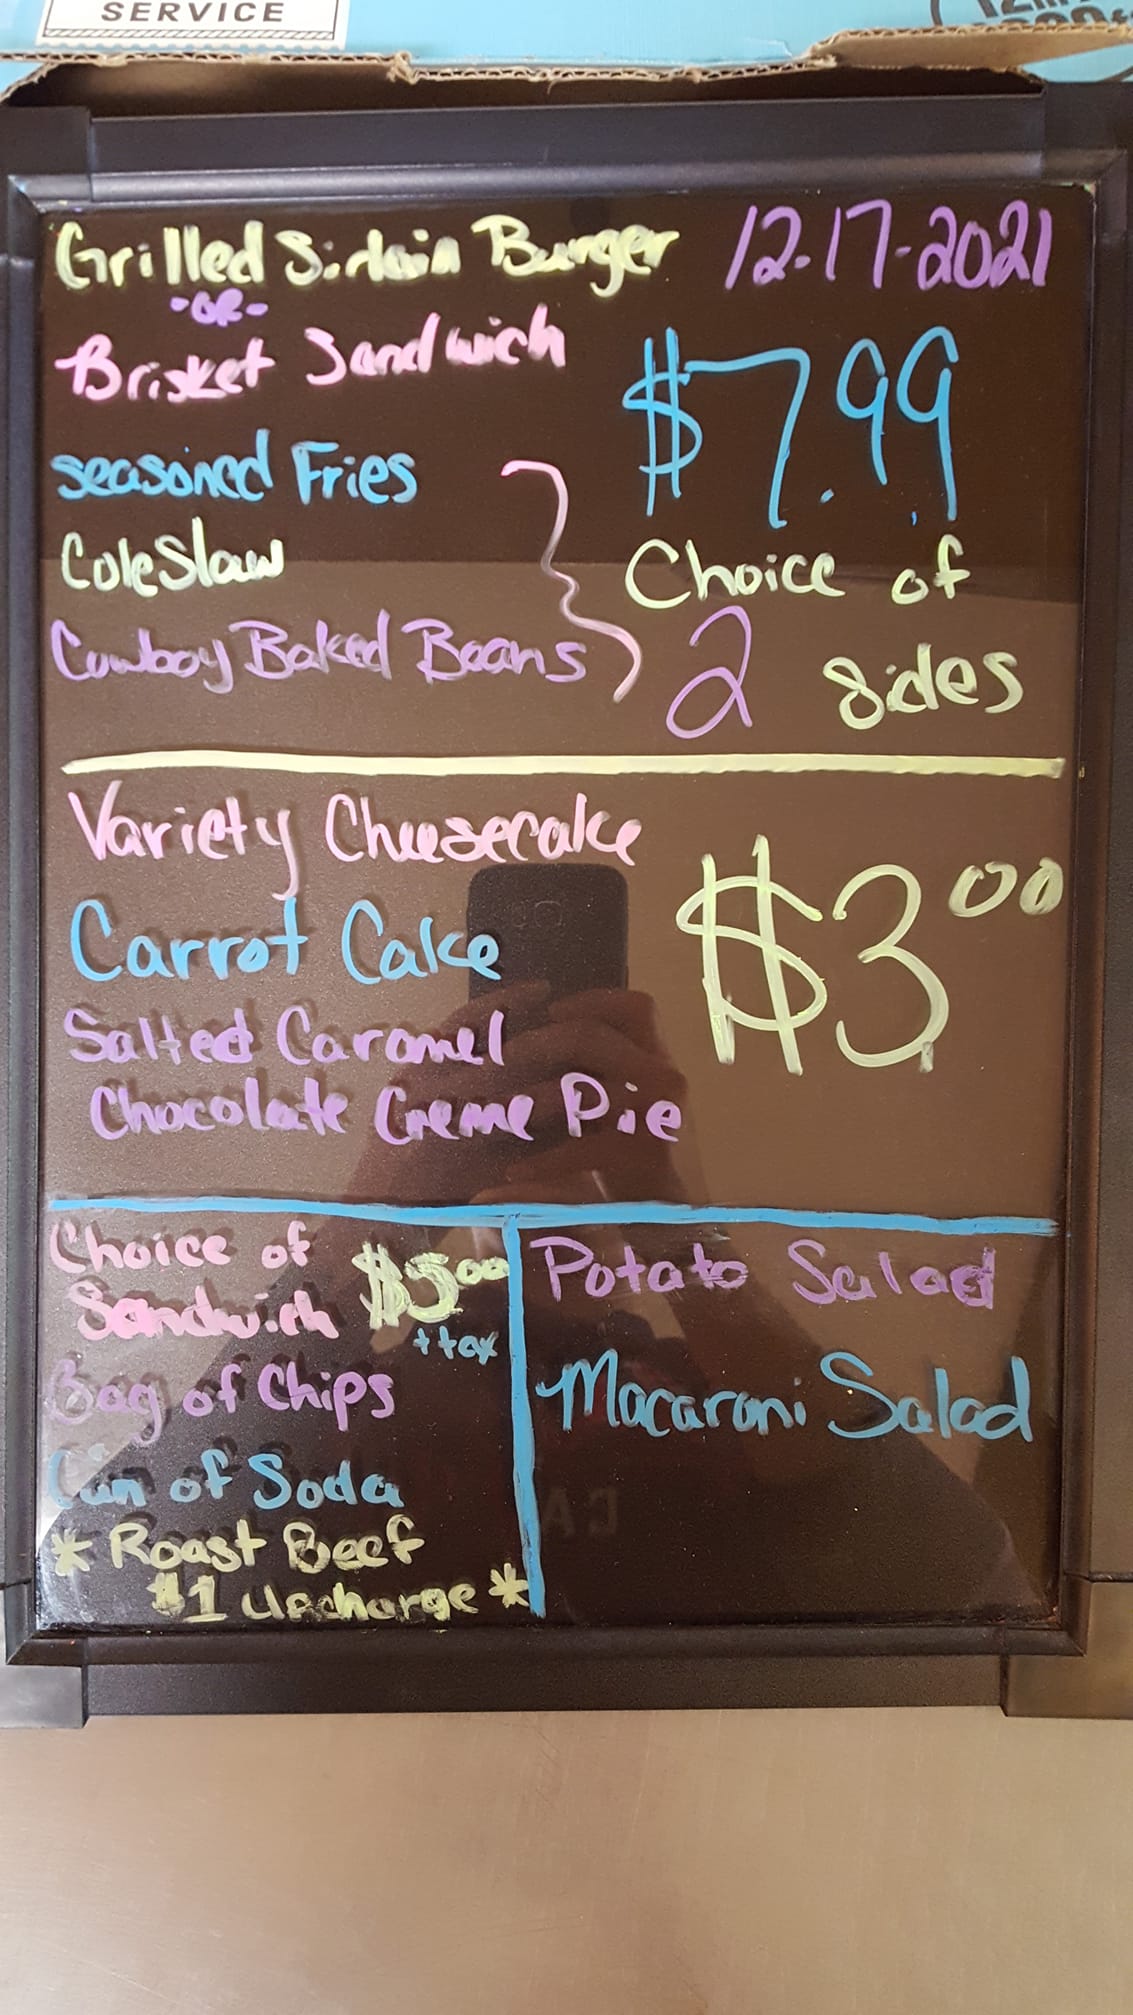 SERVICE
Grilled Sirloin Burger
12-17-2021
-OR-
Brisket Sandwich
$7.99
seasoned Fries
ColeSlaw
Cowboy Baked Beans
Choice of
2 Sides
Variety Cheesecake
$3.00
Carrot Cake
Salted Caramel
Chocolate Creme Pie
Choice of
Sandwich
$5.00
+tax
Bag of Chips
Can of Soda
* Roast Beef
$1 upcharge *
Potato Salad
Macaroni Salad